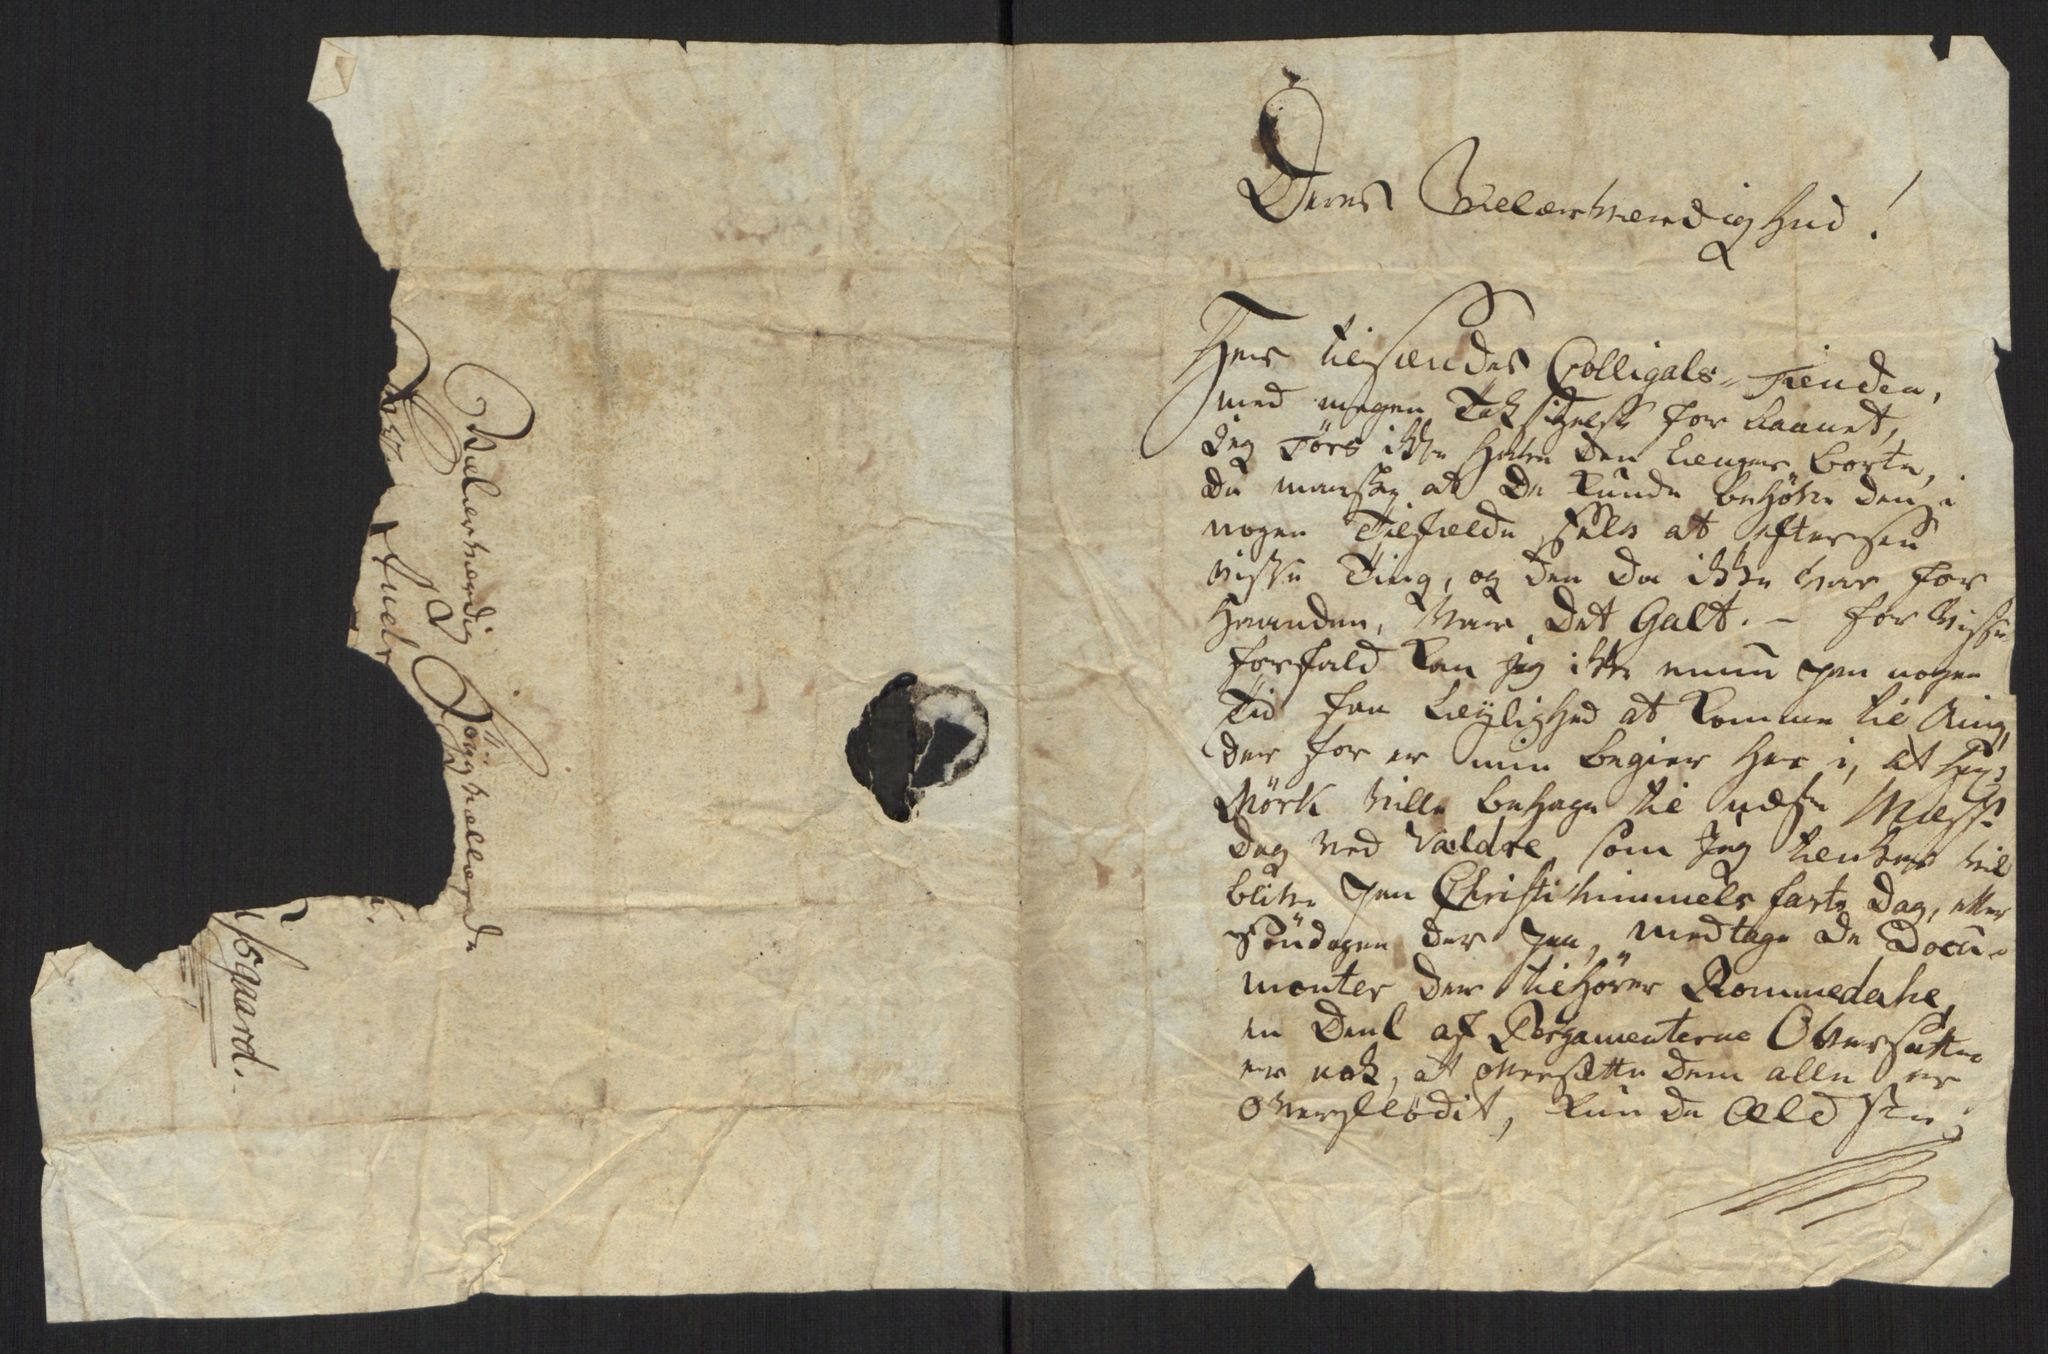 Velærværdig
Høyvellærde
Deres Velærværdighed!
Her tilsendes Colligals-Tienden,
med megen Taksigelse for Laanet,
Jeg tørs ikke have den længer borte,
da maaske at De kunde behöve den i
nogen Tilfælde selv at eftersee
visse Ting, og den da ikke var for
Haanden, Var det Galt. – for visse
forfald kan jeg ikke enuu paa nogen
Tid faa Leylighed at komme til Ring,
der for er min begier her i, at Hr:
Mörk ville behage til næste Messe
dag ved Valdre, som jeg tenker vil
blive paa Christi himmels farts Dag, eller
Söndagen der paa, medtage de Docu-
menter der tilhörer Rommedahl,
en Deel af Pergamenterne Oversatte
er nok, at oversætte dem alle er
overflödit, kun de Ældste;
sgaard.